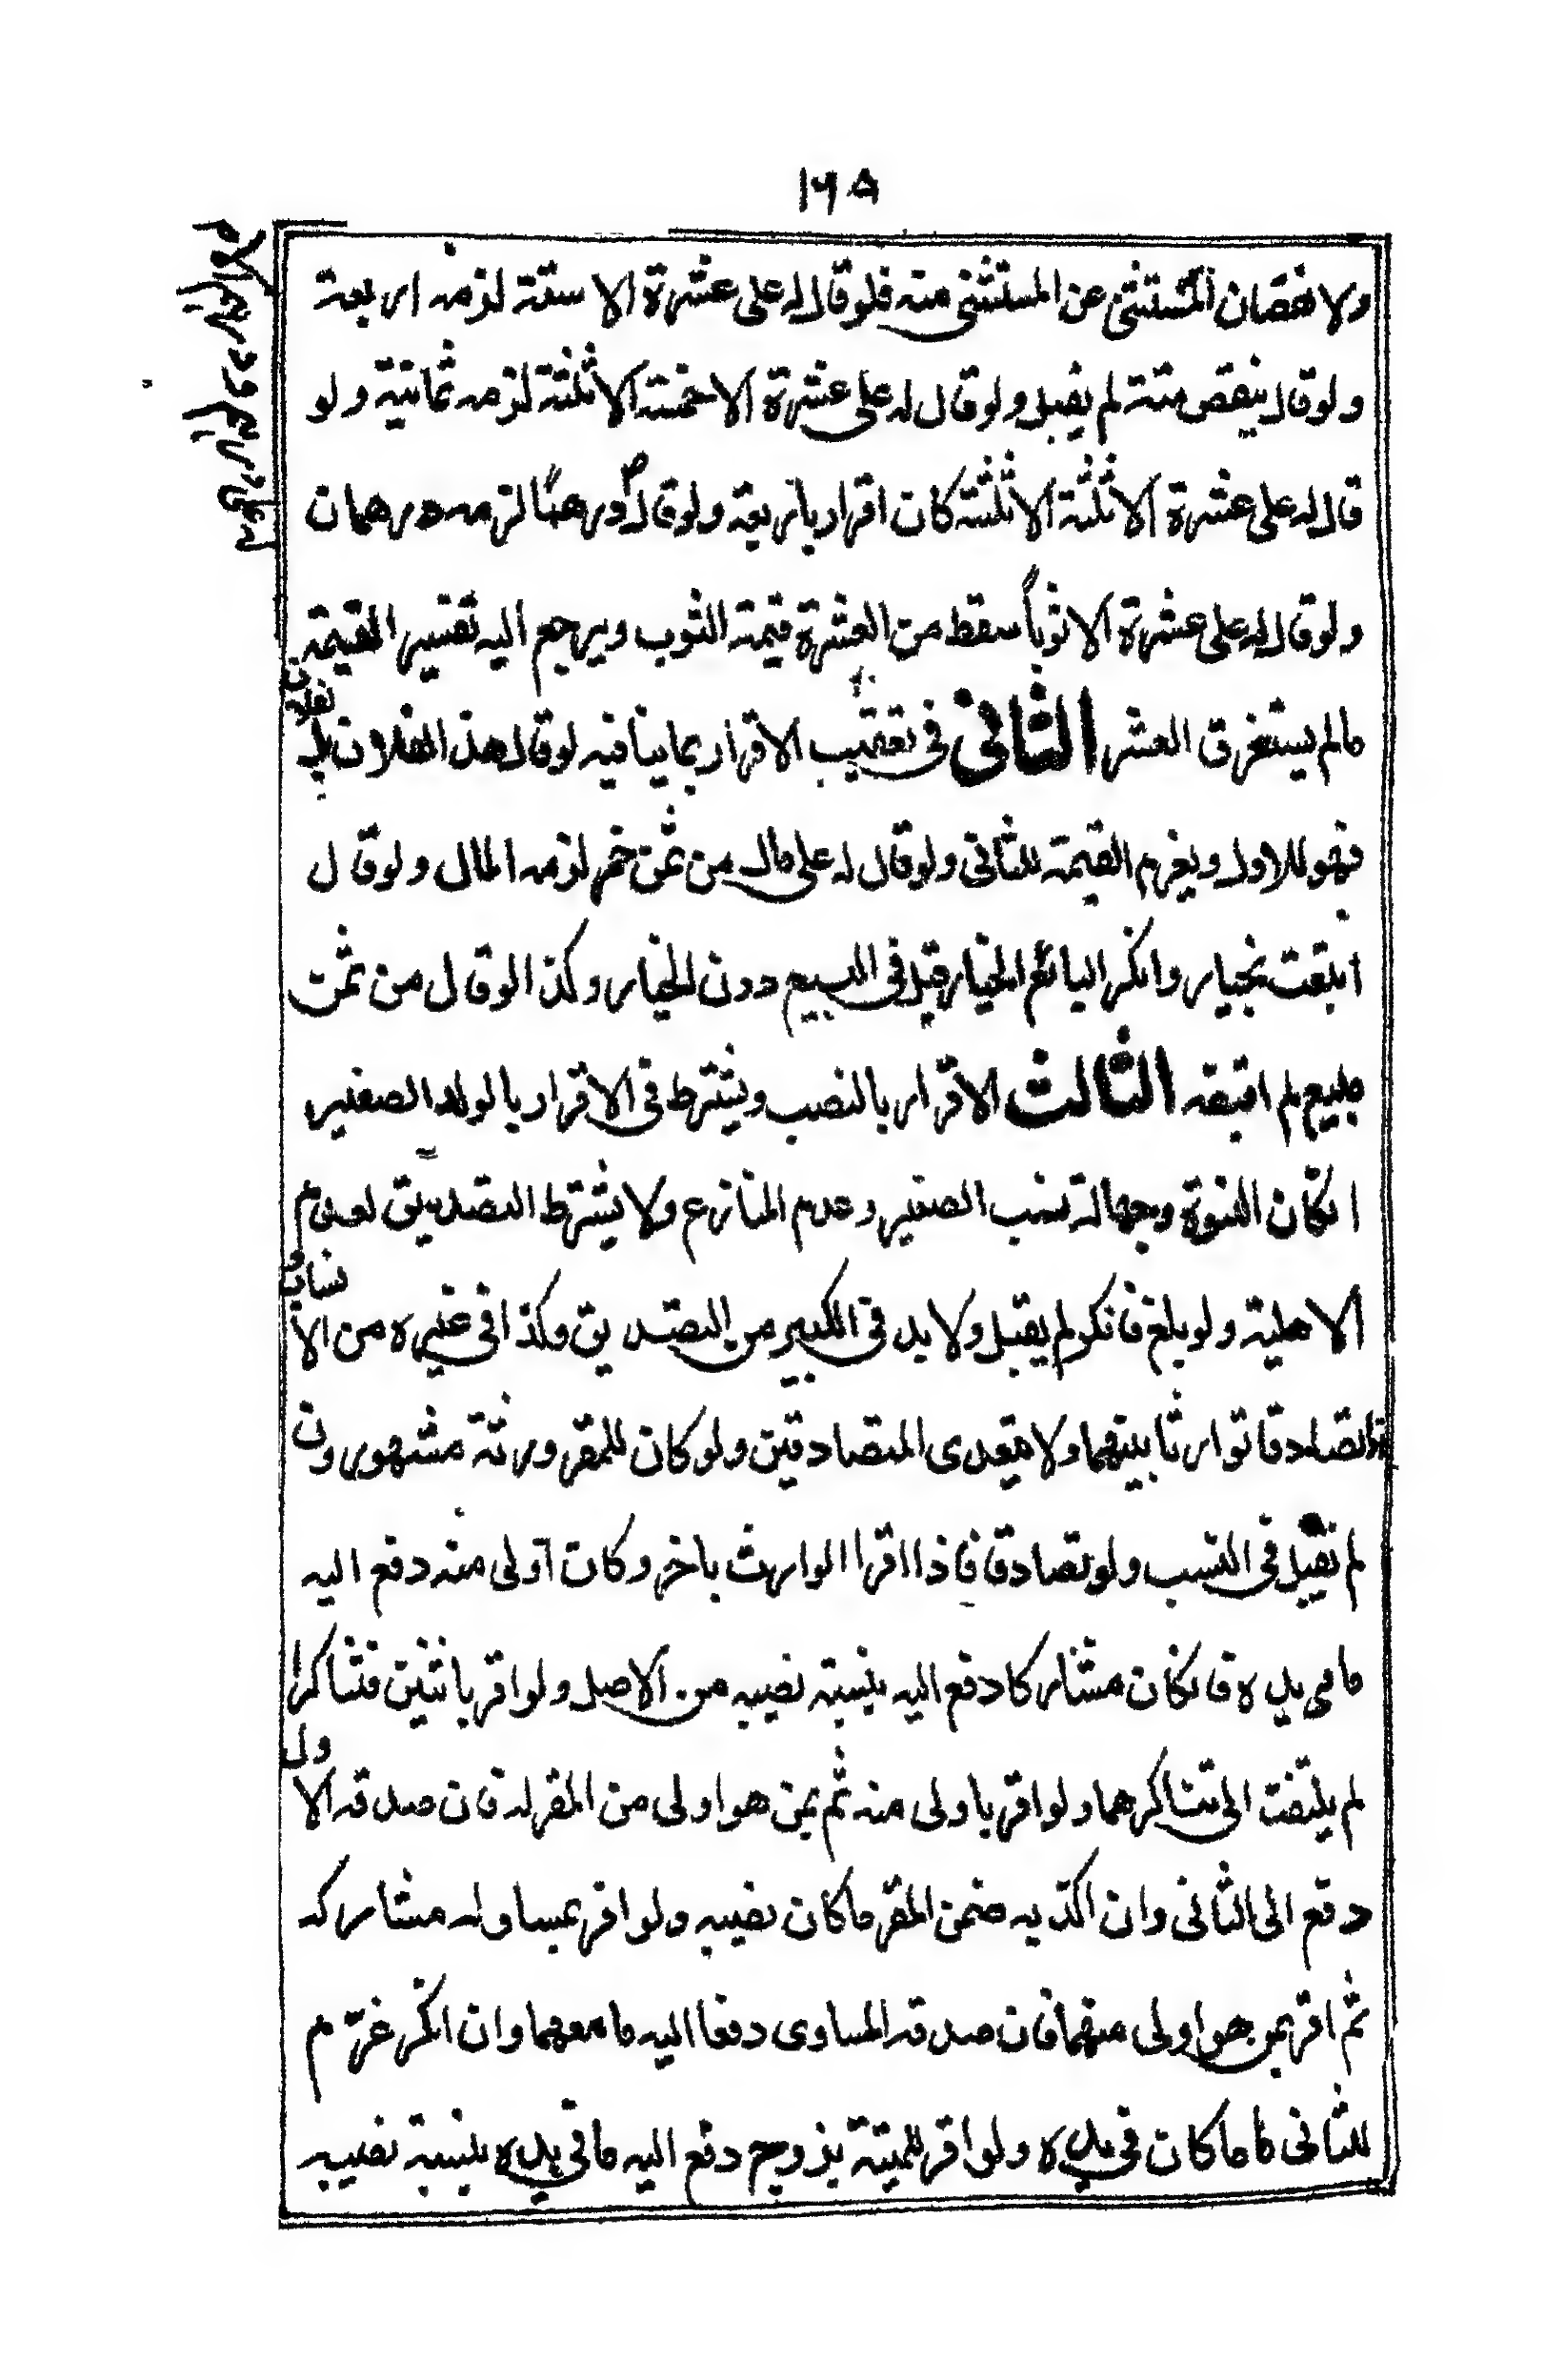 ١٦٨
ولا نقصان المستثنى عن المستثنى منه فلو قال له على عشرة الا ستة لزمه اربعة
ولو قال ينقص ستة لم يقبل ولو قال له على عشرة الا خمسة الا ثلثة لزمه ثمانية ولو
قال له على عشرة الا ثلثة الا ثلثة كان اقرار باربعة ولو قال درهما لزمه درهمان
ولو قال له على عشرة الا ثوباً سقط من العشرة قيمة الثوب ويرجع اليه تفسير القيمة
مالم يستغرق العشر الثانى فى تعقيب الاقرار بما ينافيه لو قال هذا لفلان بل لفلان
فهو للاول ويغرم القيمة للثانى ولو قال له على مال من ثمن خمر لزمه المال ولو قال
ابتعت بخيار وانكر البائع الخيار قبل فى البيع دون الخيار وكذا لو قال من ثمن
مبيع لم اقبضه الثالث الاقرار بالنسب ويشترط فى الاقرار بالولد الصغير
امكان البنوة وجهالة نسب الصغير وعدم المنازع ولا يشترط التصديق لعدم
الاهلية ولو بلغ فانكر لم يقبل ولا بد فى الكبير من التصديق وكذا فى غيره من الانساب و
اذا تصادقا توارثا بينهما ولا يتعدى المتصادقين ولو كان للمقر ورثة مشهورون
لم يقبل فى النسب ولو تصادقا فاذا اقرا الوارث باخر وكان اولى منه دفع اليه
ما فى يده فانكان مشاركا دفع اليه بنسبة نصيبه من الاصل ولو اقر باثنين فتناكرا
لم يلتفت الى تناكرهما ولو اقر باولى منه ثم بمن هو اولى من المقر له فان صدقه الاول
دفع الى الثانى وان اكذبه ضمن المقر ما كان نصيبه ولو اقر بمساو له مشاركه
ثم اقر بمن هو اولى منهما فان صدقه المساوى دفعا اليه ما معهما وان انكر غرّم
للثانى ما ما كان فى يده ولو اقر للميتة بزوج دفع اليه ما فى يده بنسبة نصيبه